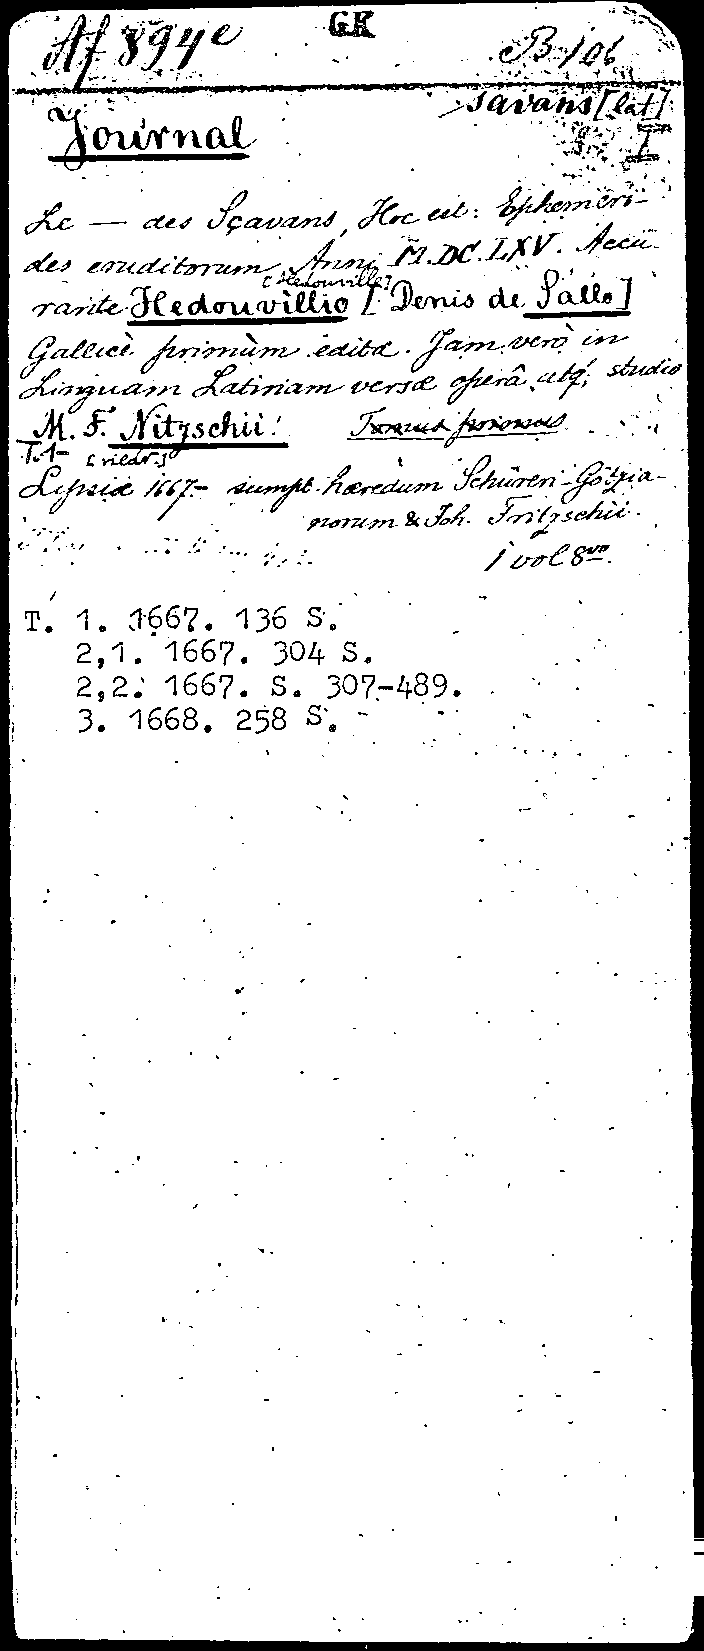 Af 894e GK B 106
savans [lat]
Journal I
Le — des Sçavans, Hoc est: Ephemeri-
des eruditorum Anni M.DC.LXV. Accu-
[Hedouville]
rante Hedouvillio [Denis de Sallo]
Gallicè primùm editæ. Jam verò in
Linguam Latinam versæ operâ atq; studio
M. F. Nitzschii. Tomus primus
T. 1- [riedr.]
Lipsiæ 1667- sumpt. hæredum Schüreri-Götzia-
norum & Joh. Fritzschii.
1 vol 8vo.
T. 1. 1667. 136 S.
2,1. 1667. 304 S.
2,2. 1667. S. 307-489.
3. 1668. 258 S.